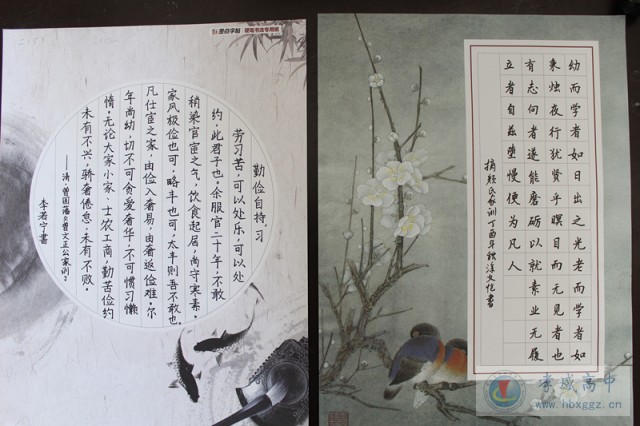 墨点字帖 硬笔书法专用纸
勤俭自持,习
劳习苦,可以处乐,可以处
约,此君子也。余服官二十年,不敢
稍染官宦之气,饮食起居,尚守寒素,
家风极俭也可,略丰也可,太丰则吾不敢也。
凡仕宦之家,由俭入奢易,由奢返俭难。尔
年尚幼,切不可贪爱奢华,不可惯习懒
惰。无论大家小家、士农工商,勤苦俭约
未有不兴,骄奢倦怠,未有不败。
——清·曾国藩《曾文正公家训》
李若宁书
幼而学者如日出之光老而学者如
秉烛夜行犹贤乎瞑目而无见者也
有志向者遂能磨砺以就素业无履
立者自兹堕慢便为凡人
摘颜氏家训丁酉年
孝感高中
www.hbxggz.cn